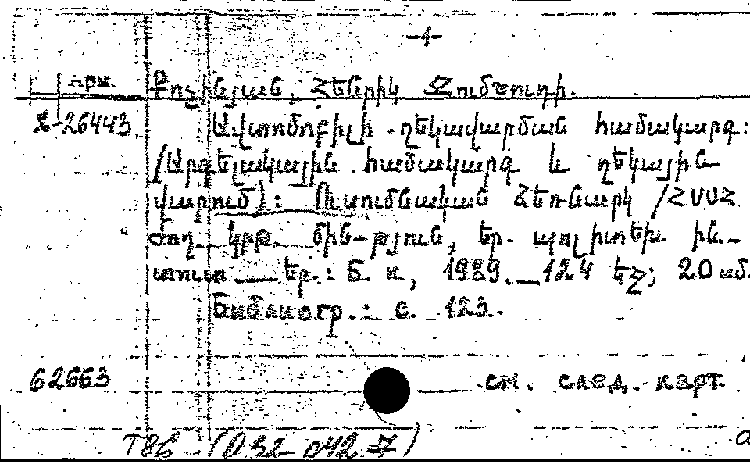 -4-
Քոչինյան, Հենրիկ Ջումշուդի.
26443 Ավտոմոբիլի ղեկավարման համակարգ:
/Արգելակային համակարգ և ղեկային
վարում): Ուսումնական ձեռնարկ /ՀՍՍՀ
ժող. կրթ. մին-թյուն, եր. պոլիտեխ. ին-
տուտ — Եր.: Б. и., 1989. — 124 էջ; 20 սմ.
Библиогр.: с. 123.
62663 см. след. карт.
T86 (032-042.7)